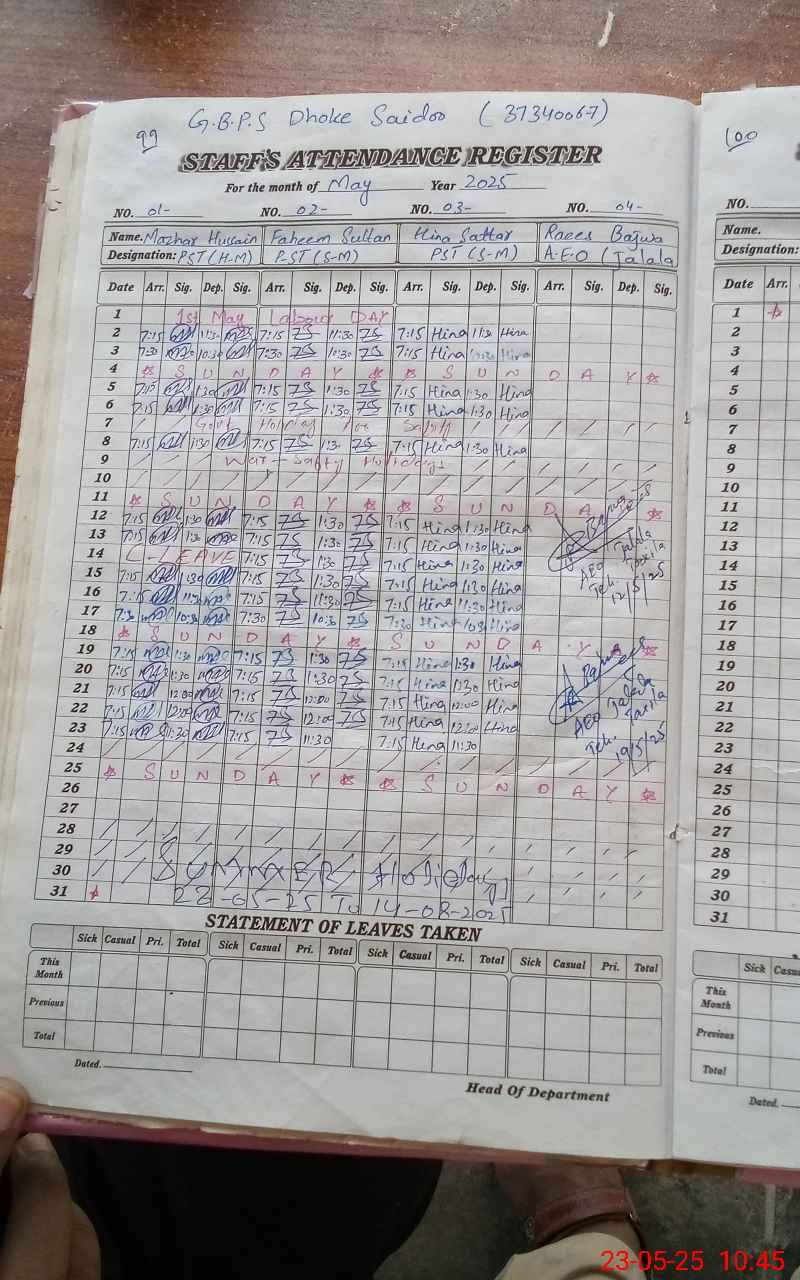 G.B.P.S Dhoke Saidoo (37340067)
99
STAFF'S ATTENDANCE REGISTER
For the month of May Year 2025
NO. 01- NO. 02- NO. 03- NO. 04-
Name. Mazhar Hussain Faheem Sultan Hina Sattar Raees Bajwa
Designation: PST (H-M) PST (S-M) PST (S-M) A.E.O (Jalala
Date Arr. Sig. Dep. Sig. Arr. Sig. Dep. Sig. Arr. Sig. Dep. Sig. Arr. Sig. Dep. Sig.
1 1st May Labour DAY
2 7:15 11:30 7:15 11:30 7:15 Hina 11:30 Hina
3 7:30 10:30 7:30 10:30 7:15 Hina Hina
4 S U N D A Y S U N D A Y
5 7:15 1:30 7:15 1:30 7:15 Hina 1:30 Hina
6 7:15 1:30 7:15 1:30 7:15 Hina 1:30 Hina
7 Govt Holiday
8 7:15 1:30 7:15 1:30 7:15 Hina 1:30 Hina
9 War - Safty Holidays
10
11 S U N D A Y S U N D A
12 7:15 1:30 7:15 1:30 7:15 Hina 1:30 Hina
13 7:15 1:30 7:15 1:30 7:15 Hina 1:30 Hina
14 C-LEAVE 7:15 1:30 7:15 Hina 1:30 Hina
15 7:15 1:30 7:15 1:30 7:15 Hina 1:30 Hina
16 7:15 11:30 7:15 11:30 7:15 Hina 11:30 Hina
17 7:30 10:30 7:30 10:30 7:30 Hina 10:30 Hina
18 S U N D A Y S U N D A Y
19 7:15 1:30 7:15 1:30 7:15 Hina 1:30 Hina
20 7:15 1:30 7:15 1:30 7:15 Hina 1:30 Hina
21 7:15 12:00 7:15 12:00 7:15 Hina 12:00 Hina
22 7:15 12:00 7:15 12:00 7:15 Hina 12:00 Hina
23 7:15 11:30 7:15 11:30 7:15 Hina 11:30
24
25 S U N D A Y S U N D A Y
26
27
28
29 SUMMER Holidays
30
31 28-05-25 To 14-08-2025
AEO Jalala
Teh. Taxila
12/5/25
AEO Jalala
Teh. Taxila
19/5/25
STATEMENT OF LEAVES TAKEN
Sick Casual Pri. Total Sick Casual Pri. Total Sick Casual Pri. Total Sick Casual Pri. Total
This Month
Previous
Total
Dated.
Head Of Department
100
NO.
Name.
Designation:
Date Arr.
1
2
3
4
5
6
7
8
9
10
11
12
13
14
15
16
17
18
19
20
21
22
23
24
25
26
27
28
29
30
31
Sick Casual
This Month
Previous
Total
Dated.
23-05-25 10:45